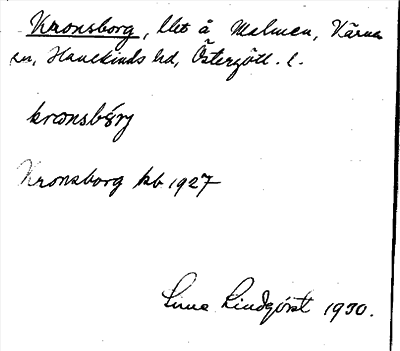 Kronsborg, lht å Malmen, Kärna
sn, Hanekinds hd, Östergötl. l.
kronsbǫrj
Kronsborg kb 1927
Lindqvist 1930.